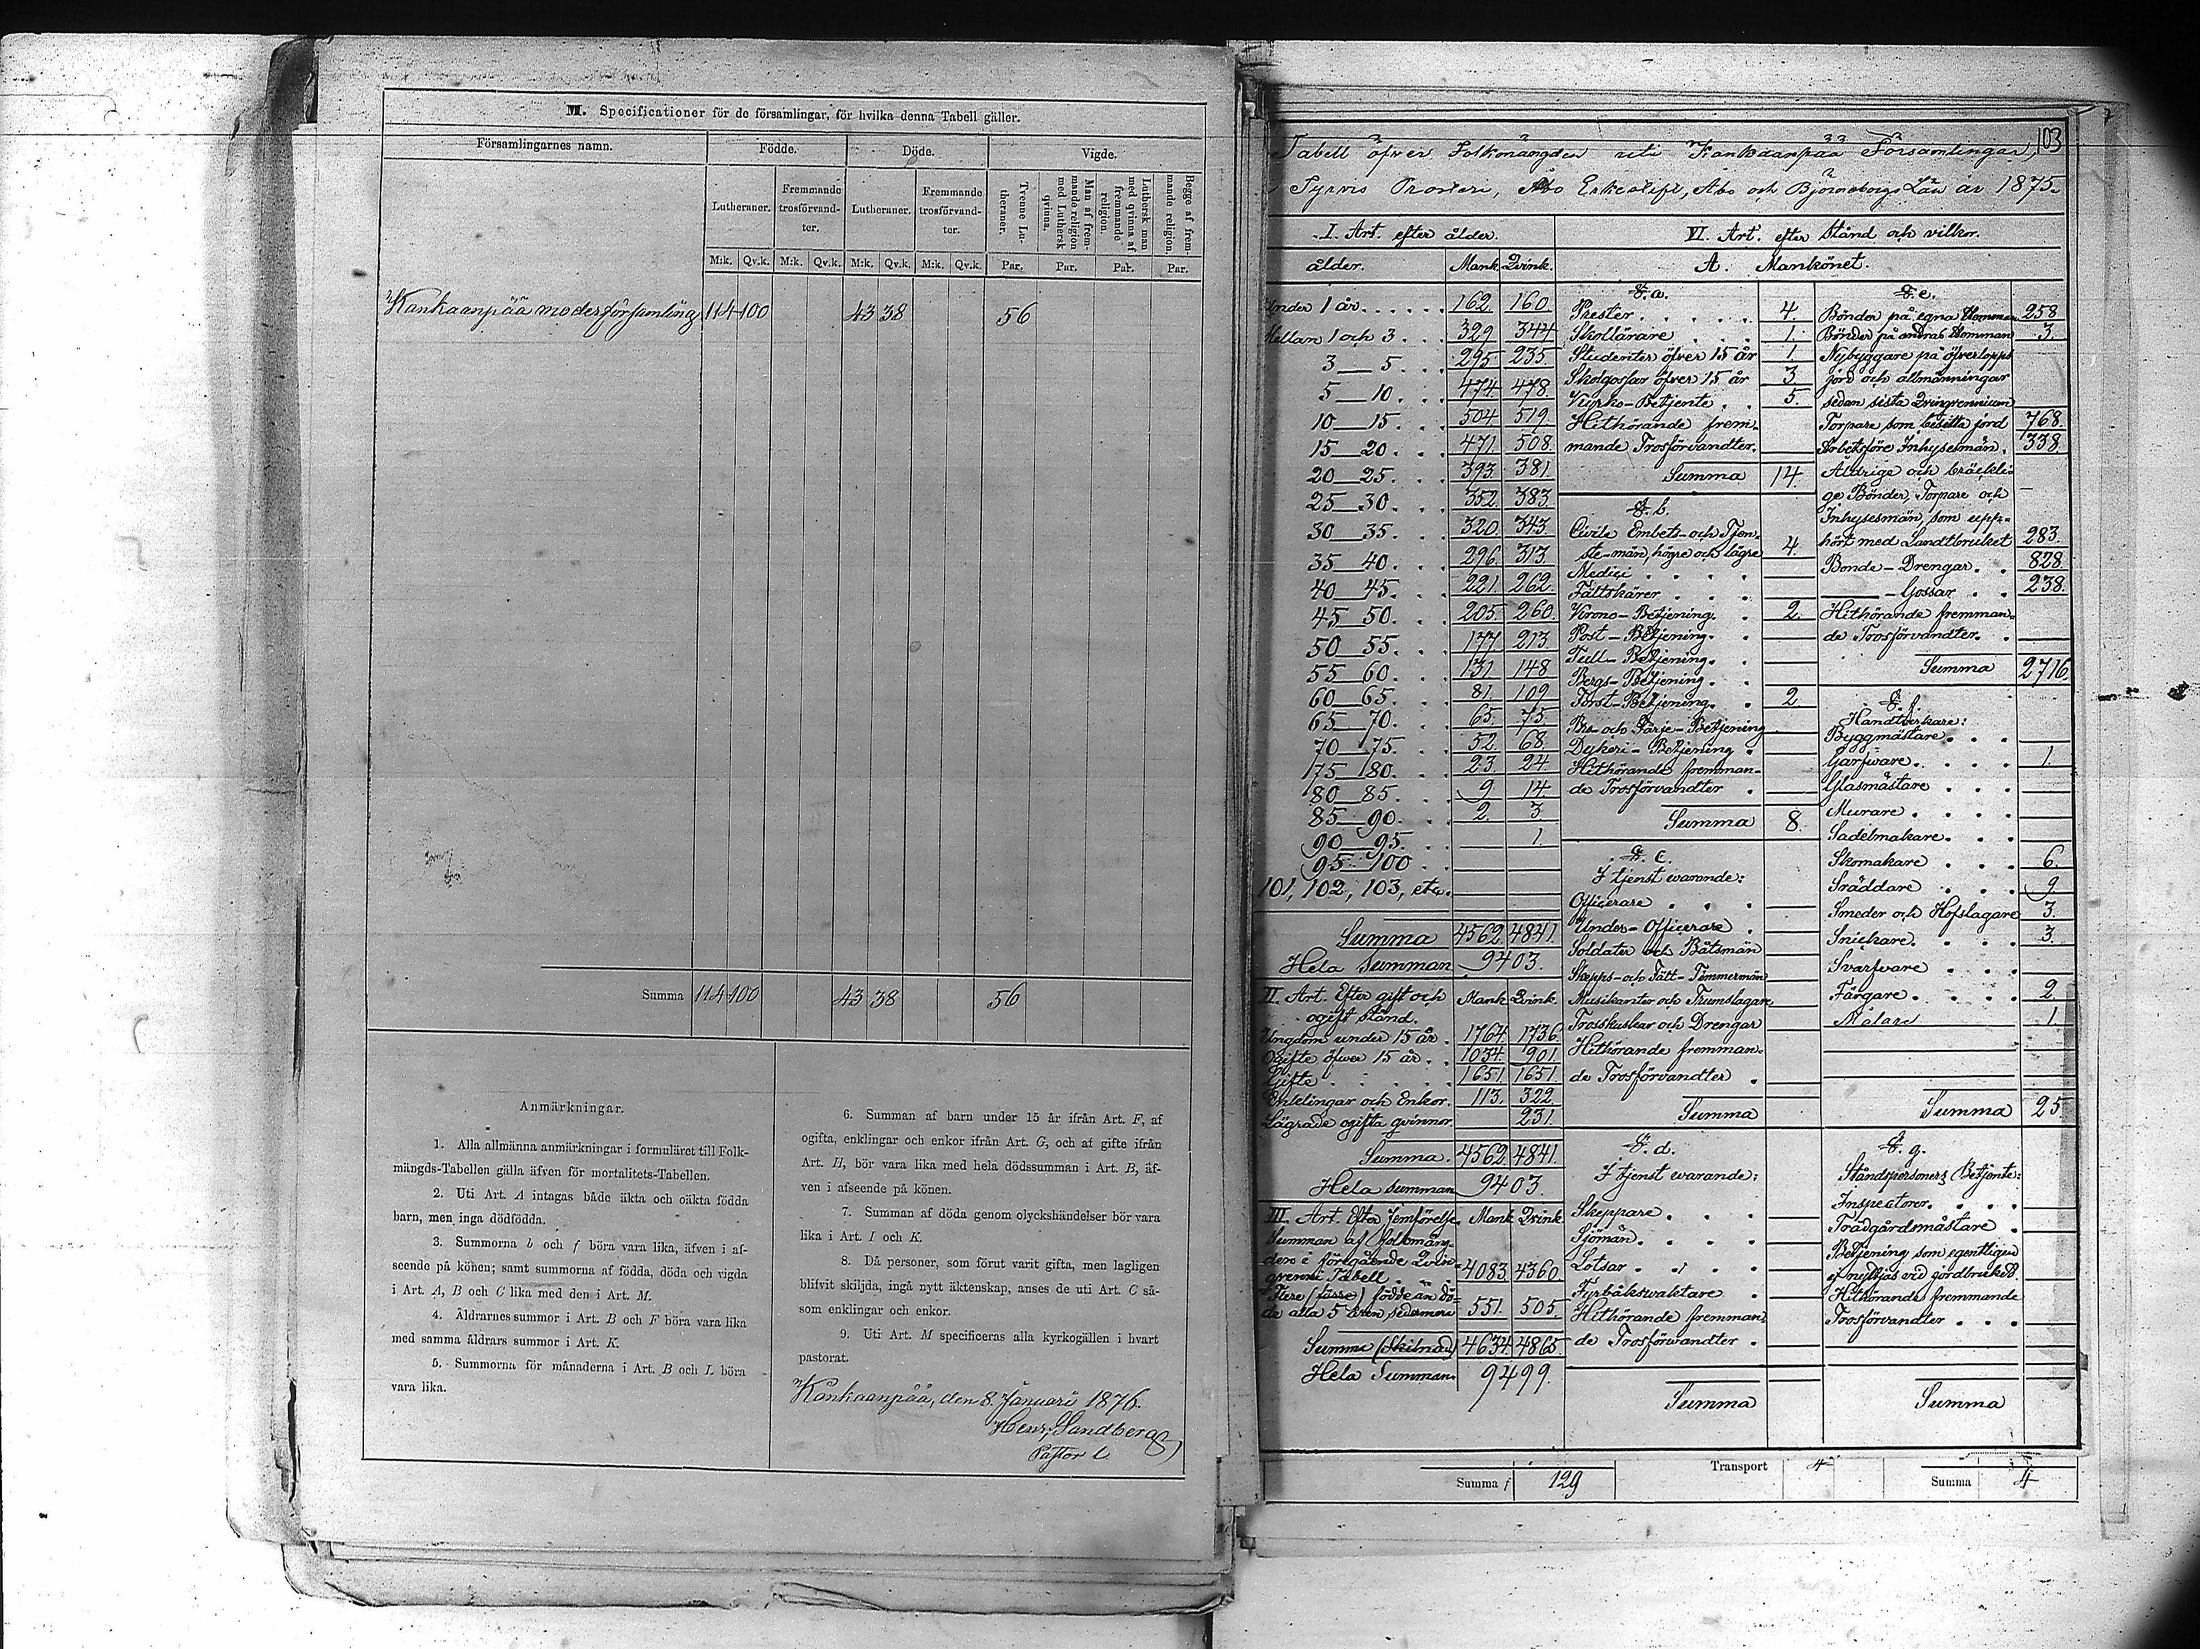 M. Specificationer för de församlingar, för hvilka denna Tabell gäller.
Församlingarnes namn.
Födde.
Döde.
Vigde.
Lutheraner.
Fremmande trosförvandter.
Lutheraner.
Fremmande trosförvandter.
Tvenne Lutheraner.
Man af fremmande religion med Luthersk qvinna.
Luthersk man med qvinna af fremmande religion.
Begge af fremmande religion.
M:k. Qv.k. M:k. Qv.k. M:k. Qv.k. M:k. Qv.k. Par. Par. Par. Par.
Kankaanpää moderförsamling 114 100 43 38 56
Summa 114 100 43 38 56
Anmärkningar.
1. Alla allmänna anmärkningar i formuläret till Folk-
mängds-Tabellen gälla äfven för mortalitets-Tabellen.
2. Uti Art. A intagas både äkta och oäkta födda
barn, men inga dödfödda.
3. Summorna b och f böra vara lika, äfven i af-
seende på könen; samt summorna af födda, döda och vigda
i Art. A, B och C lika med den i Art. M.
4. Åldrarnes summor i Art. B och F böra vara lika
med samma åldrars summor i Art. K.
5. Summorna för månaderna i Art. B och L böra
vara lika.
6. Summan af barn under 15 år ifrån Art. F, af
ogifta, enklingar och enkor ifrån Art. G, och af gifte ifrån
Art. H, bör vara lika med hela dödssumman i Art. B, äf-
ven i afseende på könen.
7. Summan af döda genom olyckshändelser bör vara
lika i Art. I och K.
8. Då personer, som förut varit gifta, men lagligen
blifvit skiljda, ingå nytt äktenskap, anses de uti Art. C så-
som enklingar och enkor.
9. Uti Art. M specificeras alla kyrkogällen i hvart
pastorat.
Kankaanpää, den 8. Januari 1876.
Henr. Sandberg
Pastor l.
103
Tabell öfver Folkmängden uti Kankaanpää Församlingar,
Tyrvis Prosteri, Åbo Erkestift, Åbo och Björneborgs Län år 1875.
I. Art. efter ålder.
ålder. Mank. Qvink.
Under 1 år 162. 160.
Mellan 1 och 3 329 344
3 5 295 235
5 10 474. 478.
10 15 504 519.
15 20 471. 508.
20 25 393. 381
25 30 352. 383
30 35 320. 343.
35 40 296. 313.
40 45 221. 262.
45 50 205. 260.
50 55 177 213.
55 60 131 148
60 65 81. 109
65 70 65. 75.
70 75 52. 68.
75 80 23 24.
80 85 9 14.
85 90 2. 3.
90 95 1.
95 100
101, 102, 103, etc.
Summa 4562. 4841.
Hela Summan 9403.
II. Art. Efter gift och Mank. Qvink.
ogift stånd.
Ungdom under 15 år 1764. 1736.
Ogifte öfver 15 år 1034. 901
Gifte 1651. 1651.
Enklingar och Enkor. 113. 322.
Lägrade ogifta qvinnor 231.
Summa. 4562 4841.
Hela Summan 9403.
III. Art. Efter Jemförelse Mank. Qvink.
Summan af folkmäng-
den i föregående Qvin-
qvennii Tabell 4083. 4360.
Flere (färre) födde än dö-
de alla 5 åren sedermera 551. 505.
Summa (Skilnad) 4634. 4865
Hela Summan. 9499.
VI. Art. efter stånd och vilkor.
A. Mankönet.
§. a.
Prester 4.
Skollärare 1.
Studenter öfver 15 år 1
Skolgossar öfver 15 år 3
Kyrko-Betjente 5.
Hithörande frem-
mande Trosförvandter.
Summa 14.
§. b.
Civile Embets- och Tjen-
ste-män, högre och lägre 4.
Medici
Fältskärer
Krono-Betjening 2.
Post-Betjening.
Tull-Betjening.
Bergs-Betjening.
Forst-Betjening. 2
Bro- och Färje-Betjening
Dykeri-Betjening
Hithörande fremman-
de Trosförvandter
Summa 8.
§. c.
I tjenst warande:
Officerare
Under-Officerare
Soldater och Båtsmän
Skepps- och Fält-Timmermän
Musikanter och Trumslagare
Trosskuskar och Drengar
Hithörande fremman-
de Trosförvandter
Summa
§. d.
I tjenst warande:
Skeppare
Sjömän
Lotsar
Fyrbåkswaktare
Hithörande fremman-
de Trosförvandter
Summa
§. e.
Bönder på egna Hemman 258
Bönder på andras Hemman 3.
Nybyggare på öfverlopps
jord och allmänningar
sedan sista Qvinqvennium
Torpare som besitta jord 768.
Arbetsföre Inhysesmän. 338.
Åldrige och bräckli-
ge Bönder, Torpare och
Inhysesmän, som upp-
hört med Landtbruket 283.
Bonde-Drengar 828.
-Gossar 238.
Hithörande fremman-
de Trosförvandter.
Summa 2716
§. f.
Handtverkare:
Byggmästare
Garfware 1.
Glasmästare
Murare
Sadelmakare
Skomakare 6.
Skräddare 9.
Smeder och Hofslagare 3.
Snickare 3.
Svarfvare
Färgare 2.
Målare 1.
Summa 25.
§. g.
Ståndspersoners Betjente:
Inspectorer
Trädgårdsmästare
Betjening som egentligen
ej nyttjas vid jordbruket.
Hithörande fremmande
Trosförvandter
Summa
Summa 129
Transport 4
Summa 4